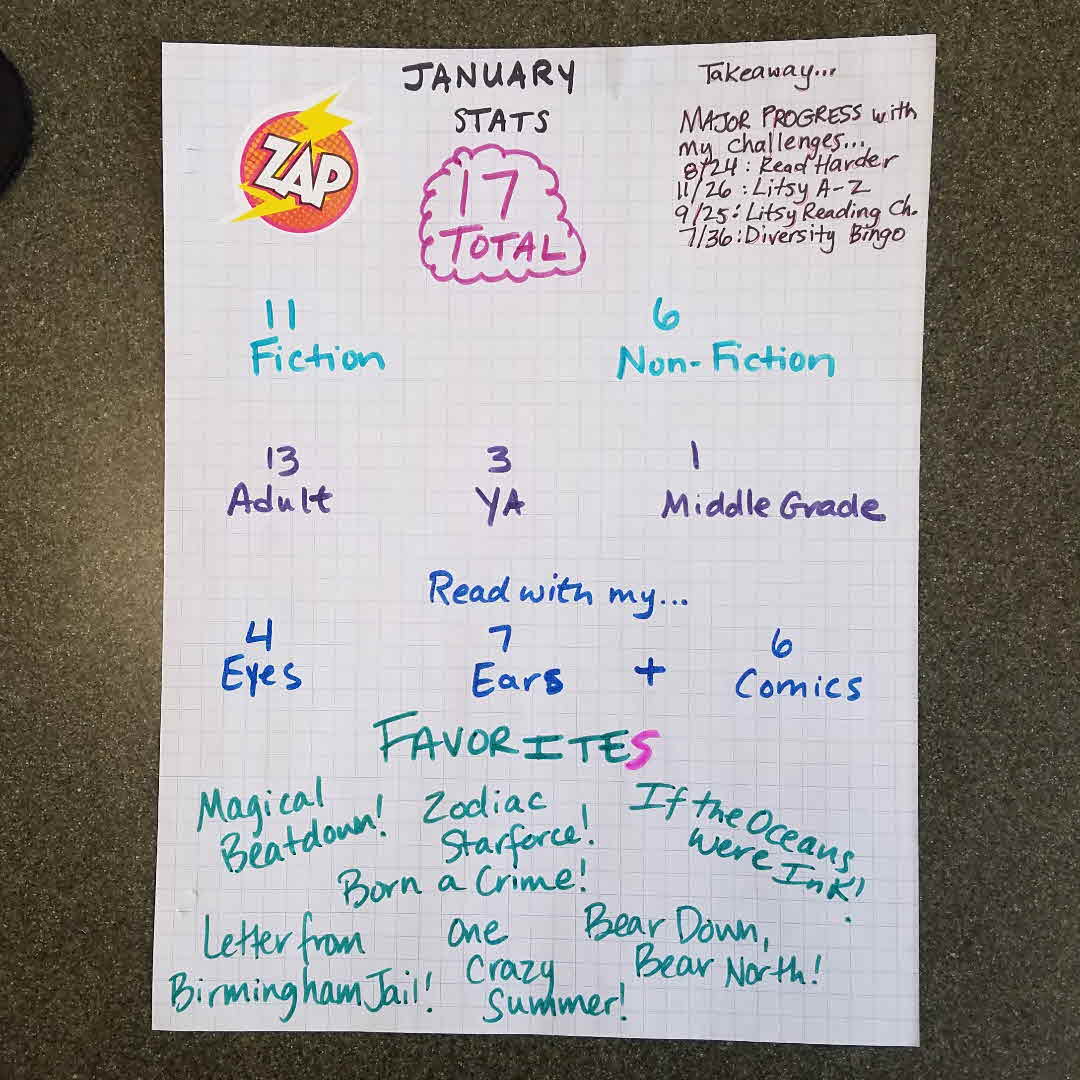 JANUARY
STATS
ZAP
17
TOTAL
Takeaway...
MAJOR PROGRESS with
my challenges...
8/24: Read Harder
11/26: Litsy A-Z
9/25: Litsy Reading Ch.
7/36: Diversity Bingo
11
Fiction
6
Non-Fiction
13
Adult
3
YA
1
Middle Grade
Read with my...
4
Eyes
7
Ears
+
6
Comics
FAVORITES
Magical
Beatdown!
Zodiac
Starforce!
If the Oceans
Were Ink!
Born a Crime!
Letter from
Birmingham Jail!
One
Crazy
Summer!
Bear Down,
Bear North!